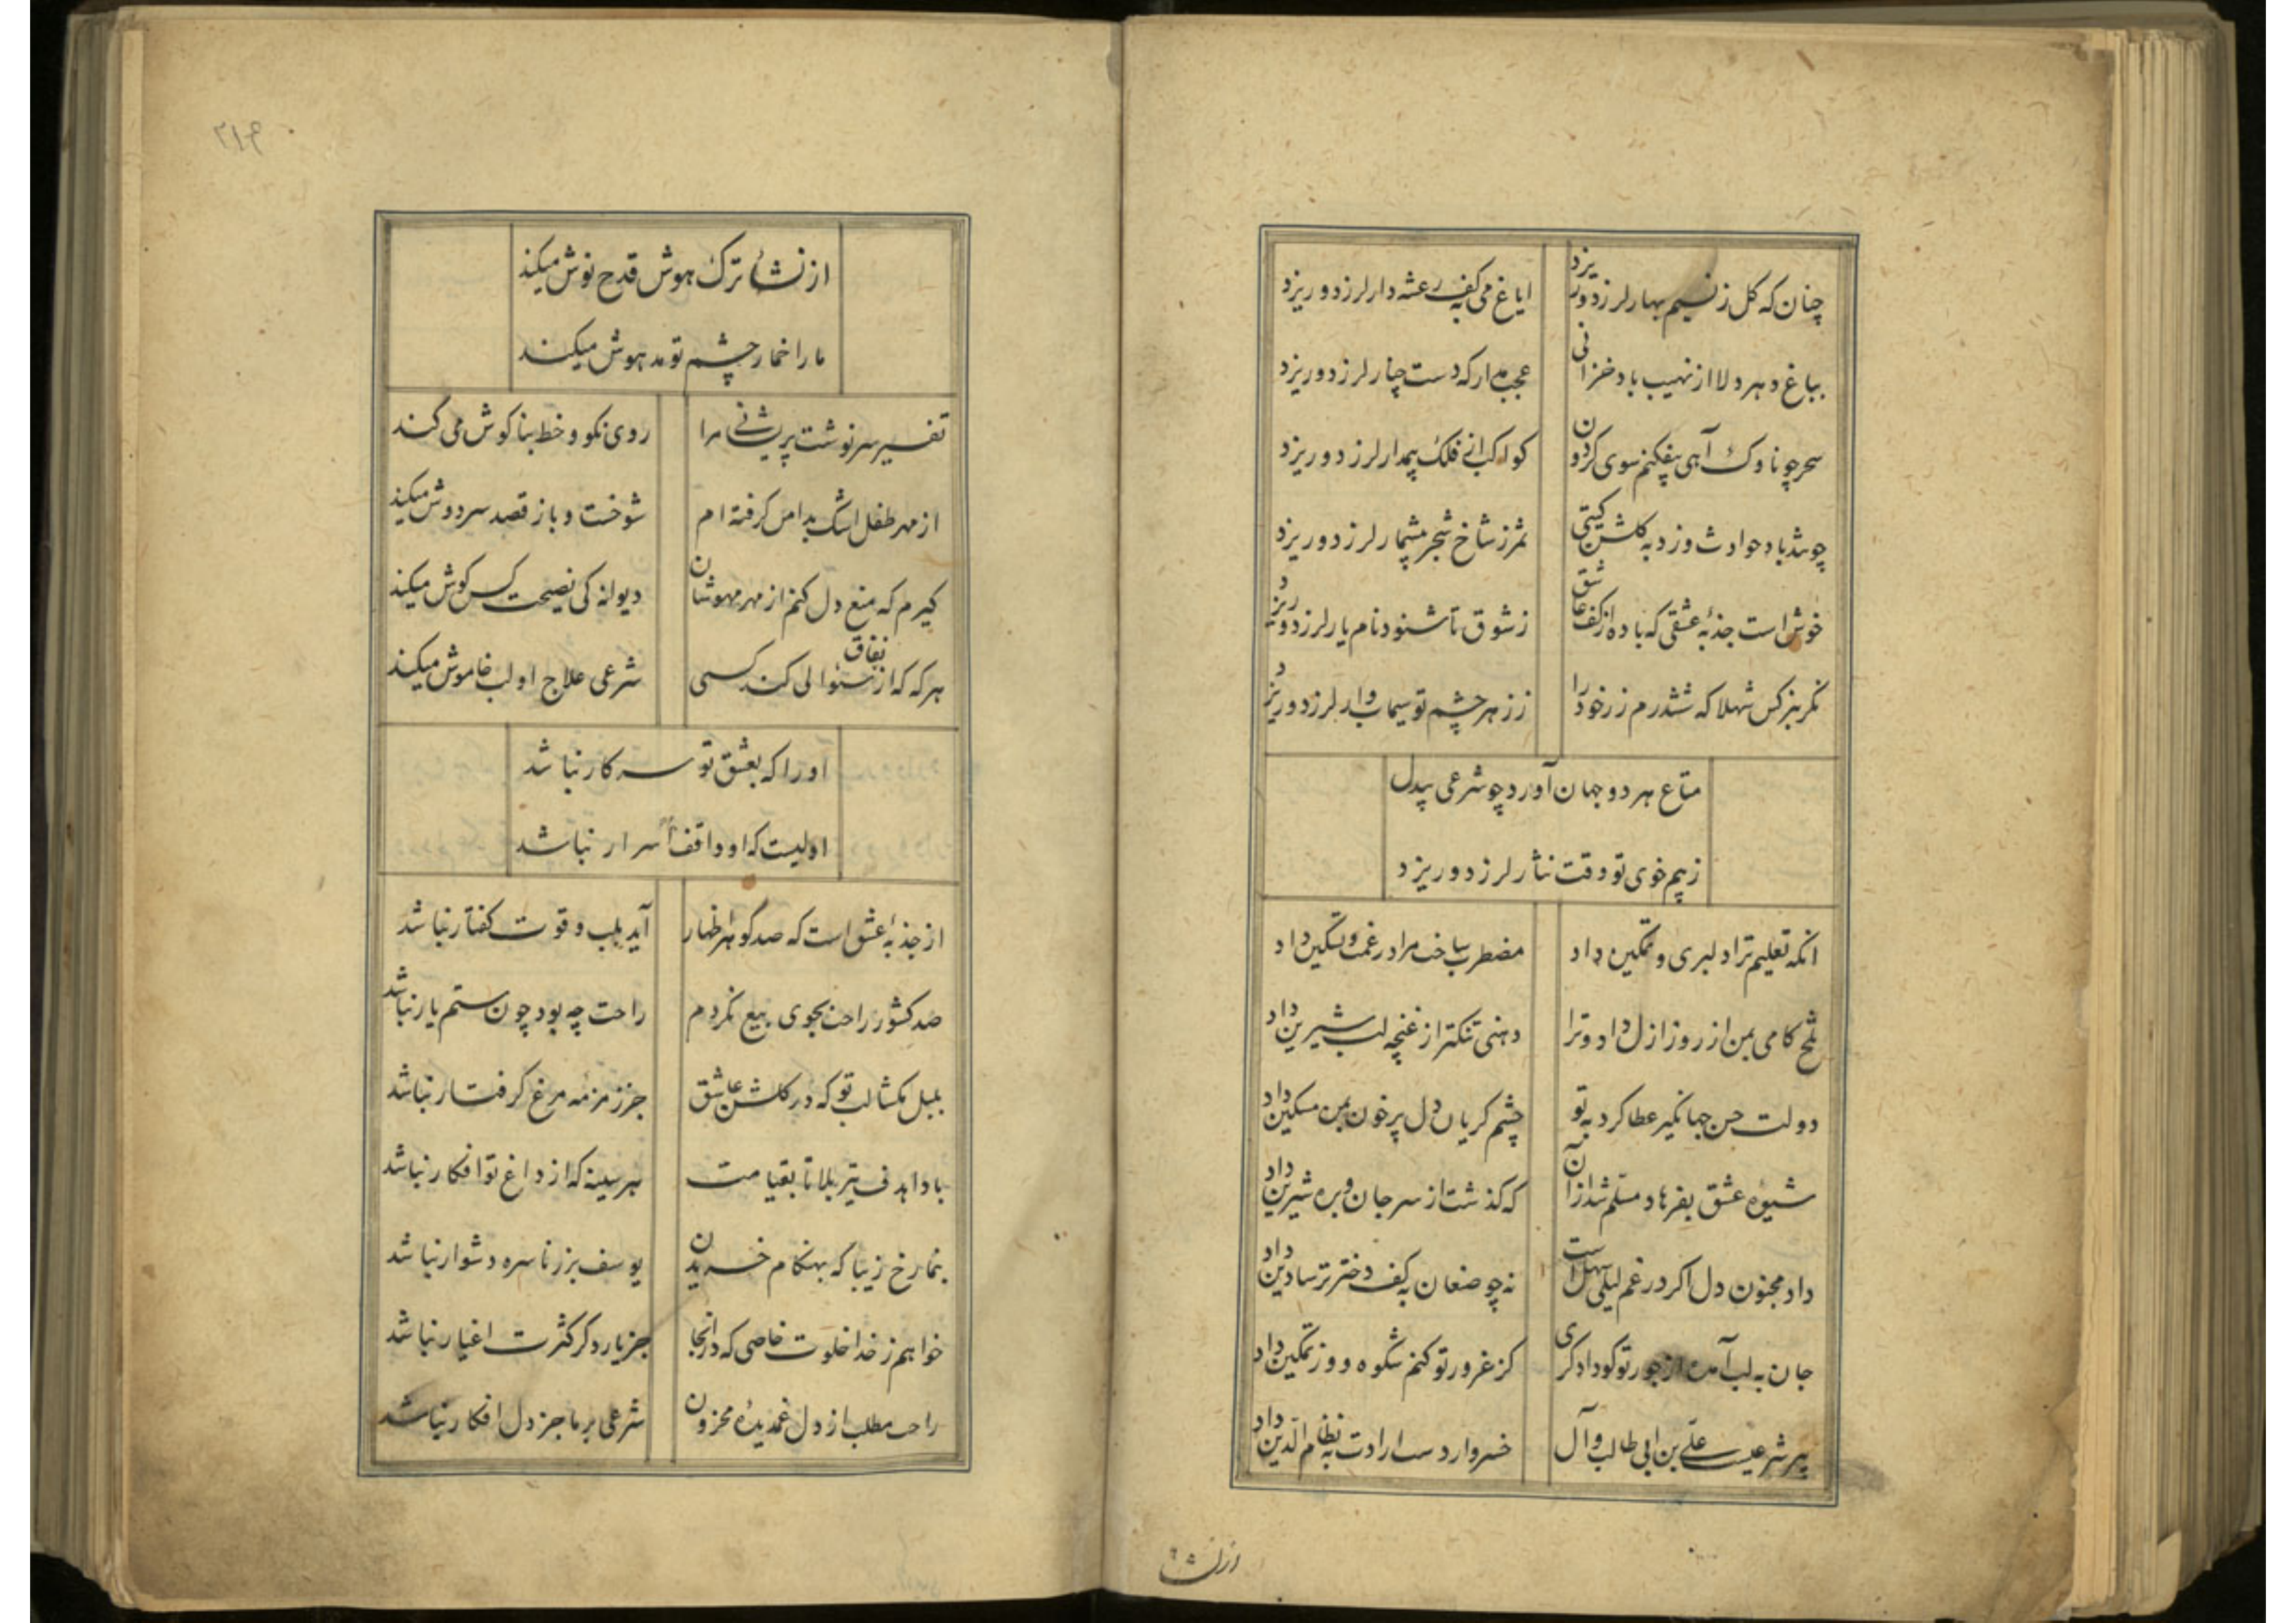 چنان که کل ز نسیم بهار لرزد و ریزد
ایاغ می به کف رعشه دار لرزد و ریزد
بباغ دهر دلا از نهیب باد خزانی
عجب مدار که دست چنار لرزد و ریزد
سحر چو ناوک آهی بیفکنم سوی کردون
کواکب فلک بیمدار لرزد و ریزد
چو تند باد حوادث وزد به کلشن کیتی
ثمر ز شاخ شجر بیشمار لرزد و ریزد
خوش است جذبۀ عشقی که باده از کف عاشق
ز شوق تا شنود نام یار لرزد و ریزد
نکر بنرکس شهلا که ششدرم زر خود را
ز زهر چشم تو سیماب وار لرزد و ریزد
متاع هر دو جهان آورد چو شرعی بیدل
ز بیم خوی تو وقت نثار لرزد و ریزد
انکه تعلیم ترا دلبری و تمکین داد
مضطرب ساخت مرا در غمت و تسکین داد
تلخ کامی بمن از روز ازل داد و ترا
دهنی تنکتر از غنچه لب شیرین داد
دولت حسن جهانکیر عطا کرد به تو
چشم کریان دل پر خون بمن مسکین داد
شیوه عشق بفرهاد مسلم شد از آن
که کذشت از سر جان و بره شیرین داد
داد مجنون دل اکر در غم لیلی سهل است
نه چو صنعان به کف دختر ترسا دین داد
جان به لب آمده از جور تو کو دادکری
کز غرور تو کنم شکوه و وز تمکین داد
پیر شرعیست علی بن ابی طالب و آل
خسرو ار دست ارادت به نظام الدین داد
از نشأ
۲۱۴
از نشأ ترک هوش قدح نوش میکند
ما را خمار چشم تو مدهوش میکند
تفسیر سرنوشت پریشانی مرا
روی نکو و خط بناکوش می کند
از مهر طفل اشک بدامن کرفته ام
شوخست و باز قصد سر دوش میکند
کیرم که منع دل کنم از مهر مهوشان
دیوانه کی نصیحت کس کوش میکند
هر که که از نفاق سئوالی کند کسی
شرعی علاج او لب خاموش میکند
او را که بعشق تو سر کار نباشد
اولیست که او واقف اسرار نباشد
از جذبۀ عشق است که صد کوهر اظهار
آید بلب و قوت کفتار نباشد
صد کشور راحت بجوی بیع نکردم
راحت چه بود چون ستم یار نباشد
بلبل بکشا لب تو که در کلشن عاشق
جز زمزمه مرغ کرفتار نباشد
بادا هدف تیر بلا تا بقیامت
هر سینه که از داغ تو افکار نباشد
بنما رخ زیبا که بهنکام خریدن
یوسف بزر ناسره دشوار نباشد
خواهم ز خدا خلوت خاصی که در انجا
جز یار دکر کثرت اغیار نباشد
راحت مطلب از دل غمدیدۀ محزون
شرعی بر ما جز دل افکار نباشد